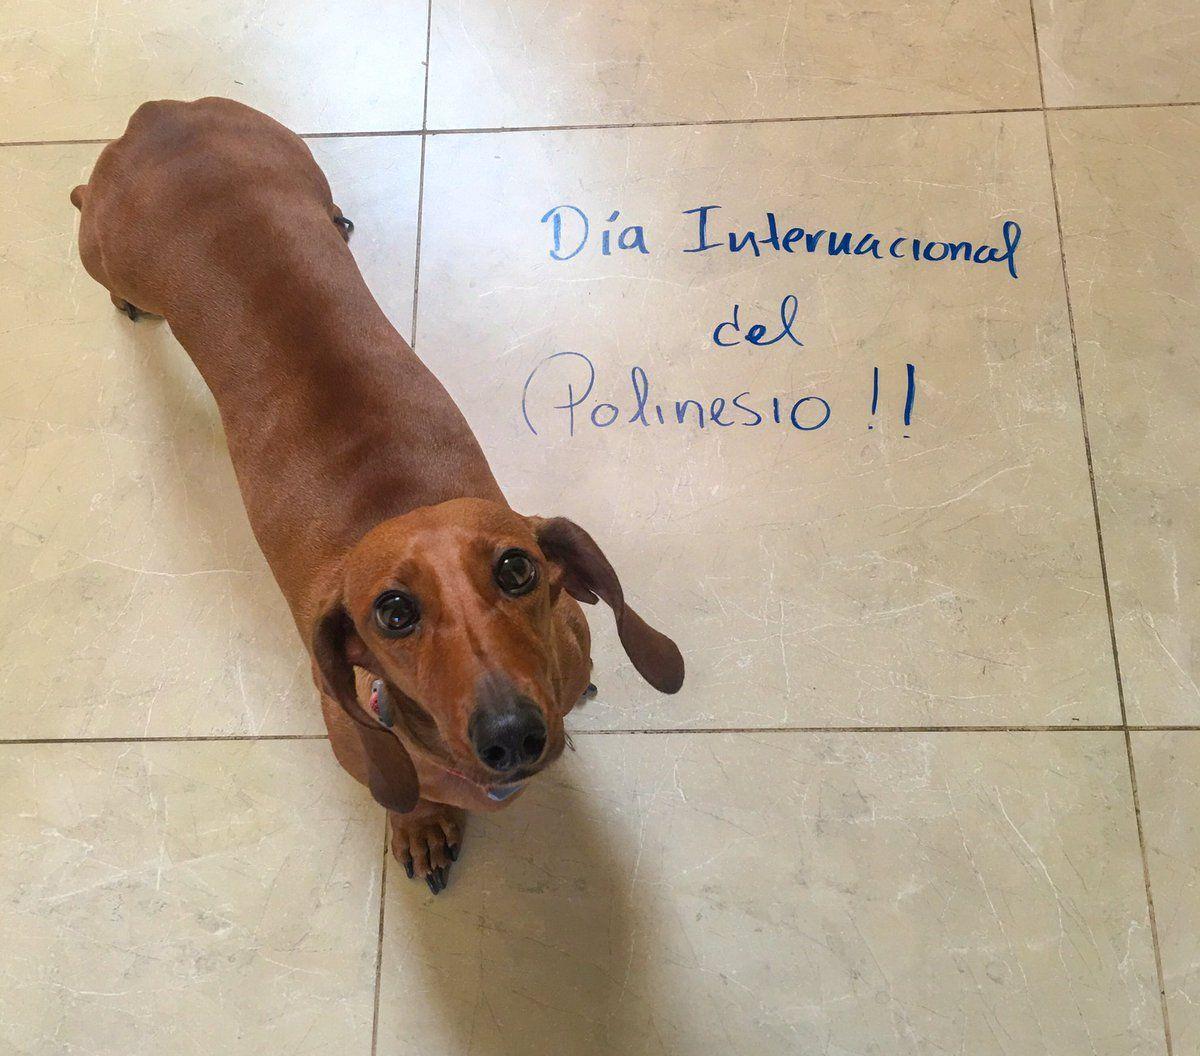 Día Internacional
del
Polinesio !!